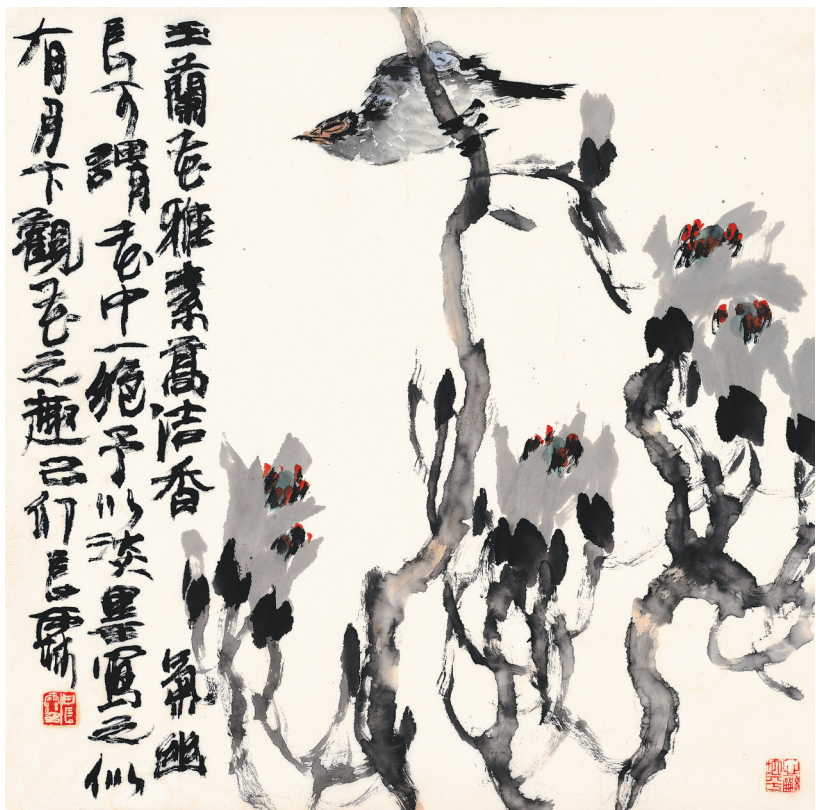 玉蘭花雅素高洁香氣幽
長可謂花中一絶予以淡墨寫之似
有月下觀花之趣